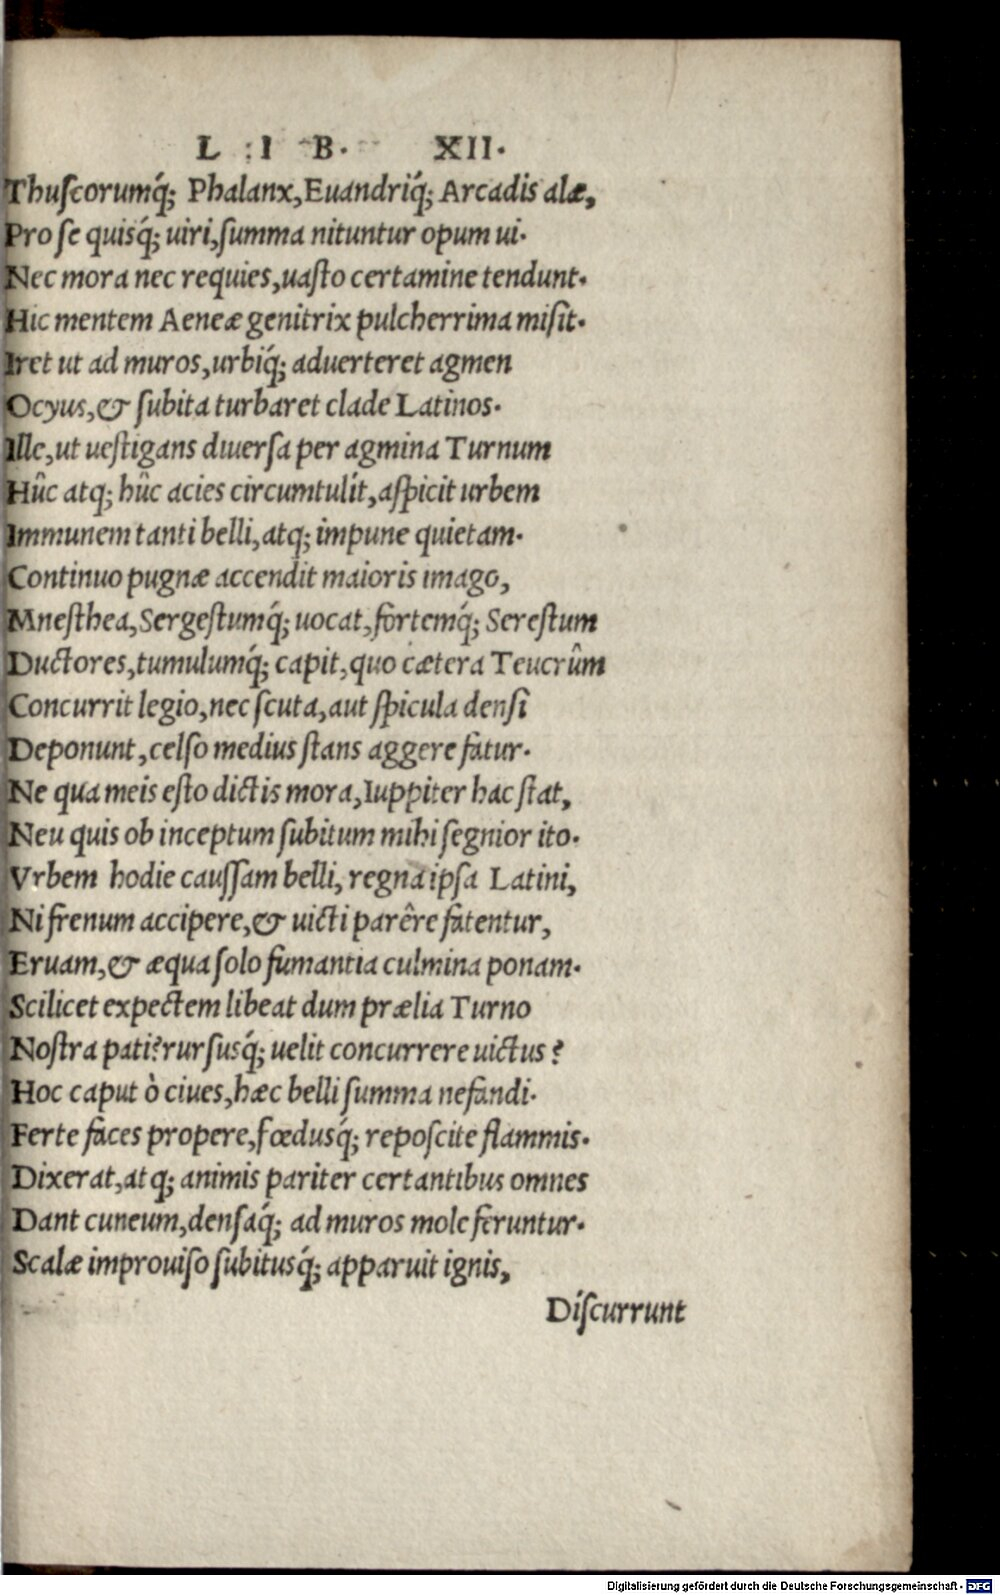 L I B. XII.
Thuſcorumq́; Phalanx, Euandriq́; Arcadis alæ,
Pro ſe quisq́; uiri, ſumma nituntur opum ui.
Nec mora nec requies, uaſto certamine tendunt.
Hic mentem Aeneæ genitrix pulcherrima miſit.
Iret ut ad muros, urbiq́; aduerteret agmen
Ocyus, & ſubita turbaret clade Latinos.
Ille, ut ueſtigans diuerſa per agmina Turnum
Hûc atq; hûc acies circumtulit, aſpicit urbem
Immunem tanti belli, atq; impune quietam.
Continuo pugnæ accendit maioris imago,
Mneſthea, Sergeſtumq́; uocat, fortemq́; Sereſtum
Ductores, tumulumq́; capit, quo cætera Teucrûm
Concurrit legio, nec ſcuta, aut ſpicula denſi
Deponunt, celſo medius ſtans aggere fatur.
Ne qua meis eſto dictis mora, Iuppiter hac ſtat,
Neu quis ob inceptum ſubitum mihi ſegnior ito.
Vrbem hodie cauſſam belli, regna ipſa Latini,
Ni frenum accipere, & uicti parêre fatentur,
Eruam, & æqua ſolo fumantia culmina ponam.
Scilicet expectem libeat dum prælia Turno
Noſtra pati? rurſusq́; uelit concurrere uictus?
Hoc caput ò ciues, hæc belli ſumma nefandi.
Ferte faces propere, fœdusq́; repoſcite flammis.
Dixerat, atq; animis pariter certantibus omnes
Dant cuneum, denſaq́; ad muros mole feruntur.
Scalæ improuiſo ſubitusq́; apparuit ignis,
Diſcurrunt
Digitalisierung gefördert durch die Deutsche Forschungsgemeinschaft - DFG